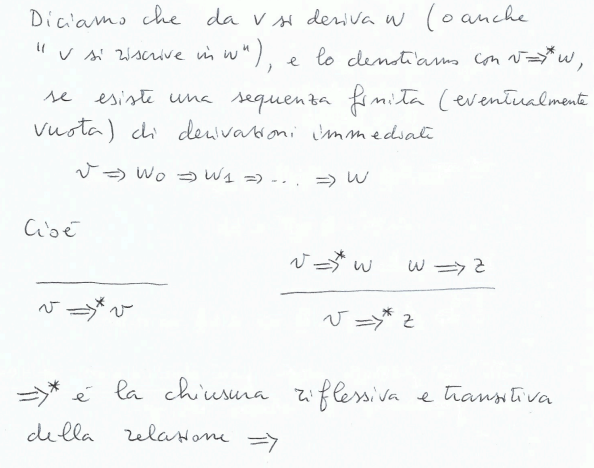 Diciamo che da v si deriva w (o anche
"v si riscrive in w"), e lo denotiamo con v ⇒* w,
se esiste una sequenza finita (eventualmente
vuota) di derivazioni immediate
v ⇒ w₀ ⇒ w₁ ⇒ ... ⇒ w
Cioè
v ⇒* w w ⇒ z
v ⇒* v
v ⇒* z
⇒* è la chiusura riflessiva e transitiva
della relazione ⇒